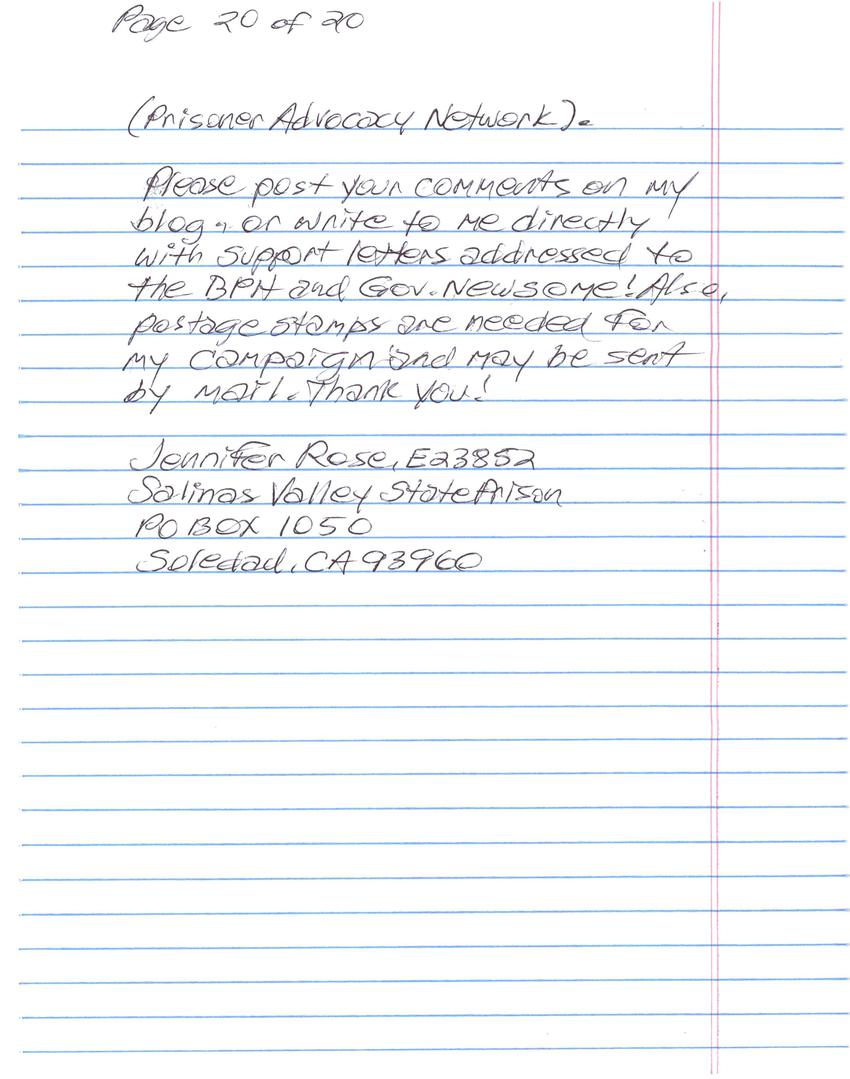 Page 20 of 20
(Prisoner Advocacy Network).
Please post your comments on my
blog, or write to me directly
with support letters addressed to
the BPH and Gov. Newsome! Also,
postage stamps are needed for
my campaign and may be sent
by mail. Thank you!
Jennifer Rose, E23852
Salinas Valley State Prison
PO BOX 1050
Soledad, CA 93960